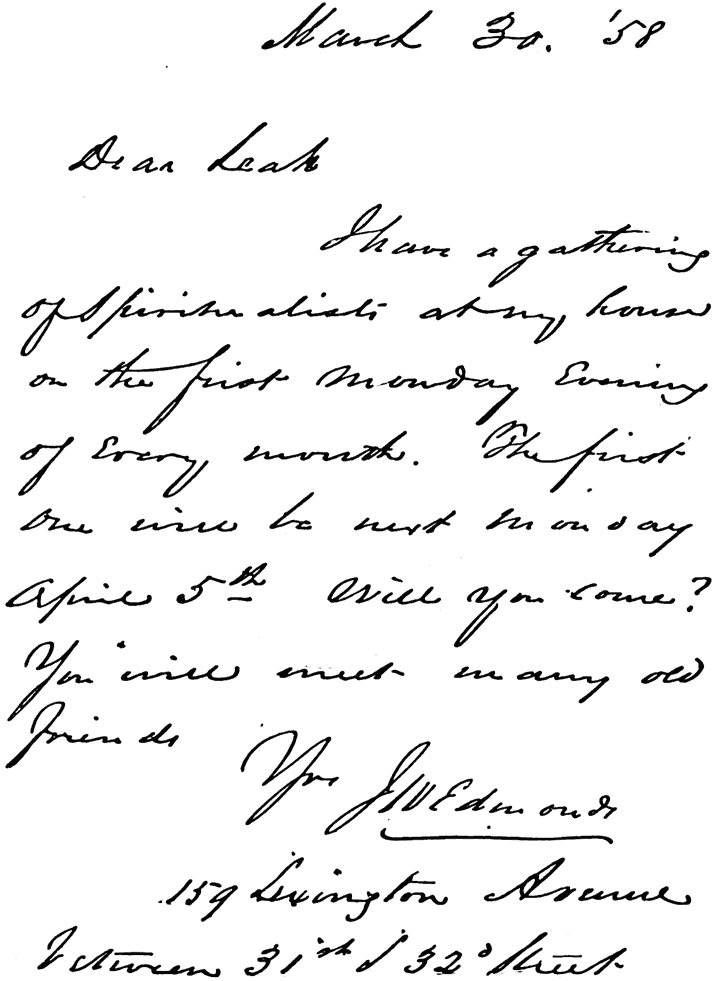 March 30. '58
Dear Leah
I have a gathering
of Spiritualists at my house
on the first Monday Evening
of Every month. The first
one will be next Monday
April 5th Will you come?
You will meet many old
friends
Yrs JWEdmonds
159 Lexington Avenue
between 31st & 32d Street